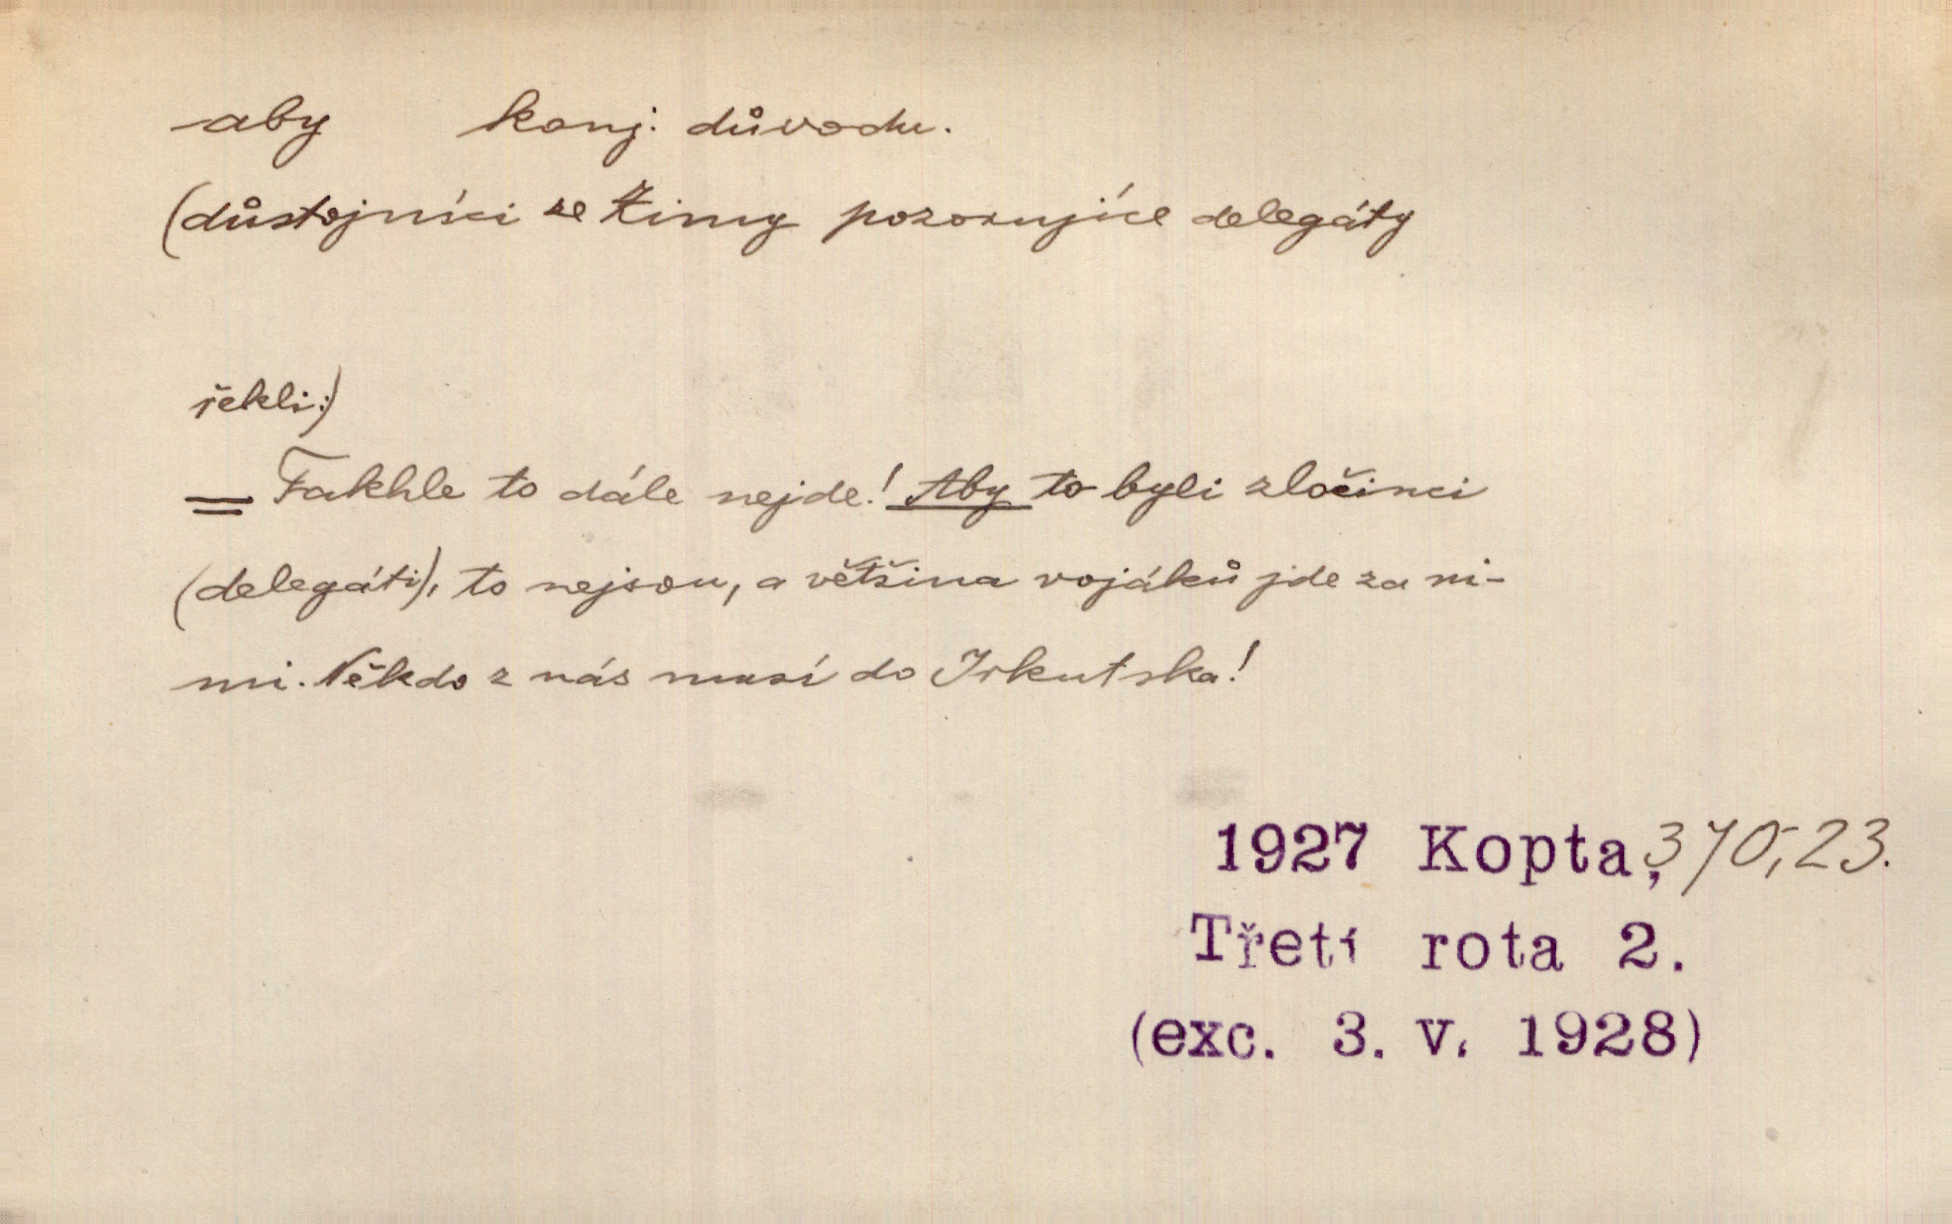 aby konj. důvodu.
(důstojníci ze Zimy pozorujíce delegáty
řekli:)
= Takhle to dále nejde! Aby to byli zločinci
(delegáti), to nejsou, a většina vojáků jde za ni-
mi. Někdo z nás musí do Irkutska!
1927 Kopta, 370,23.
Třetí rota 2.
(exc. 3. V. 1928)